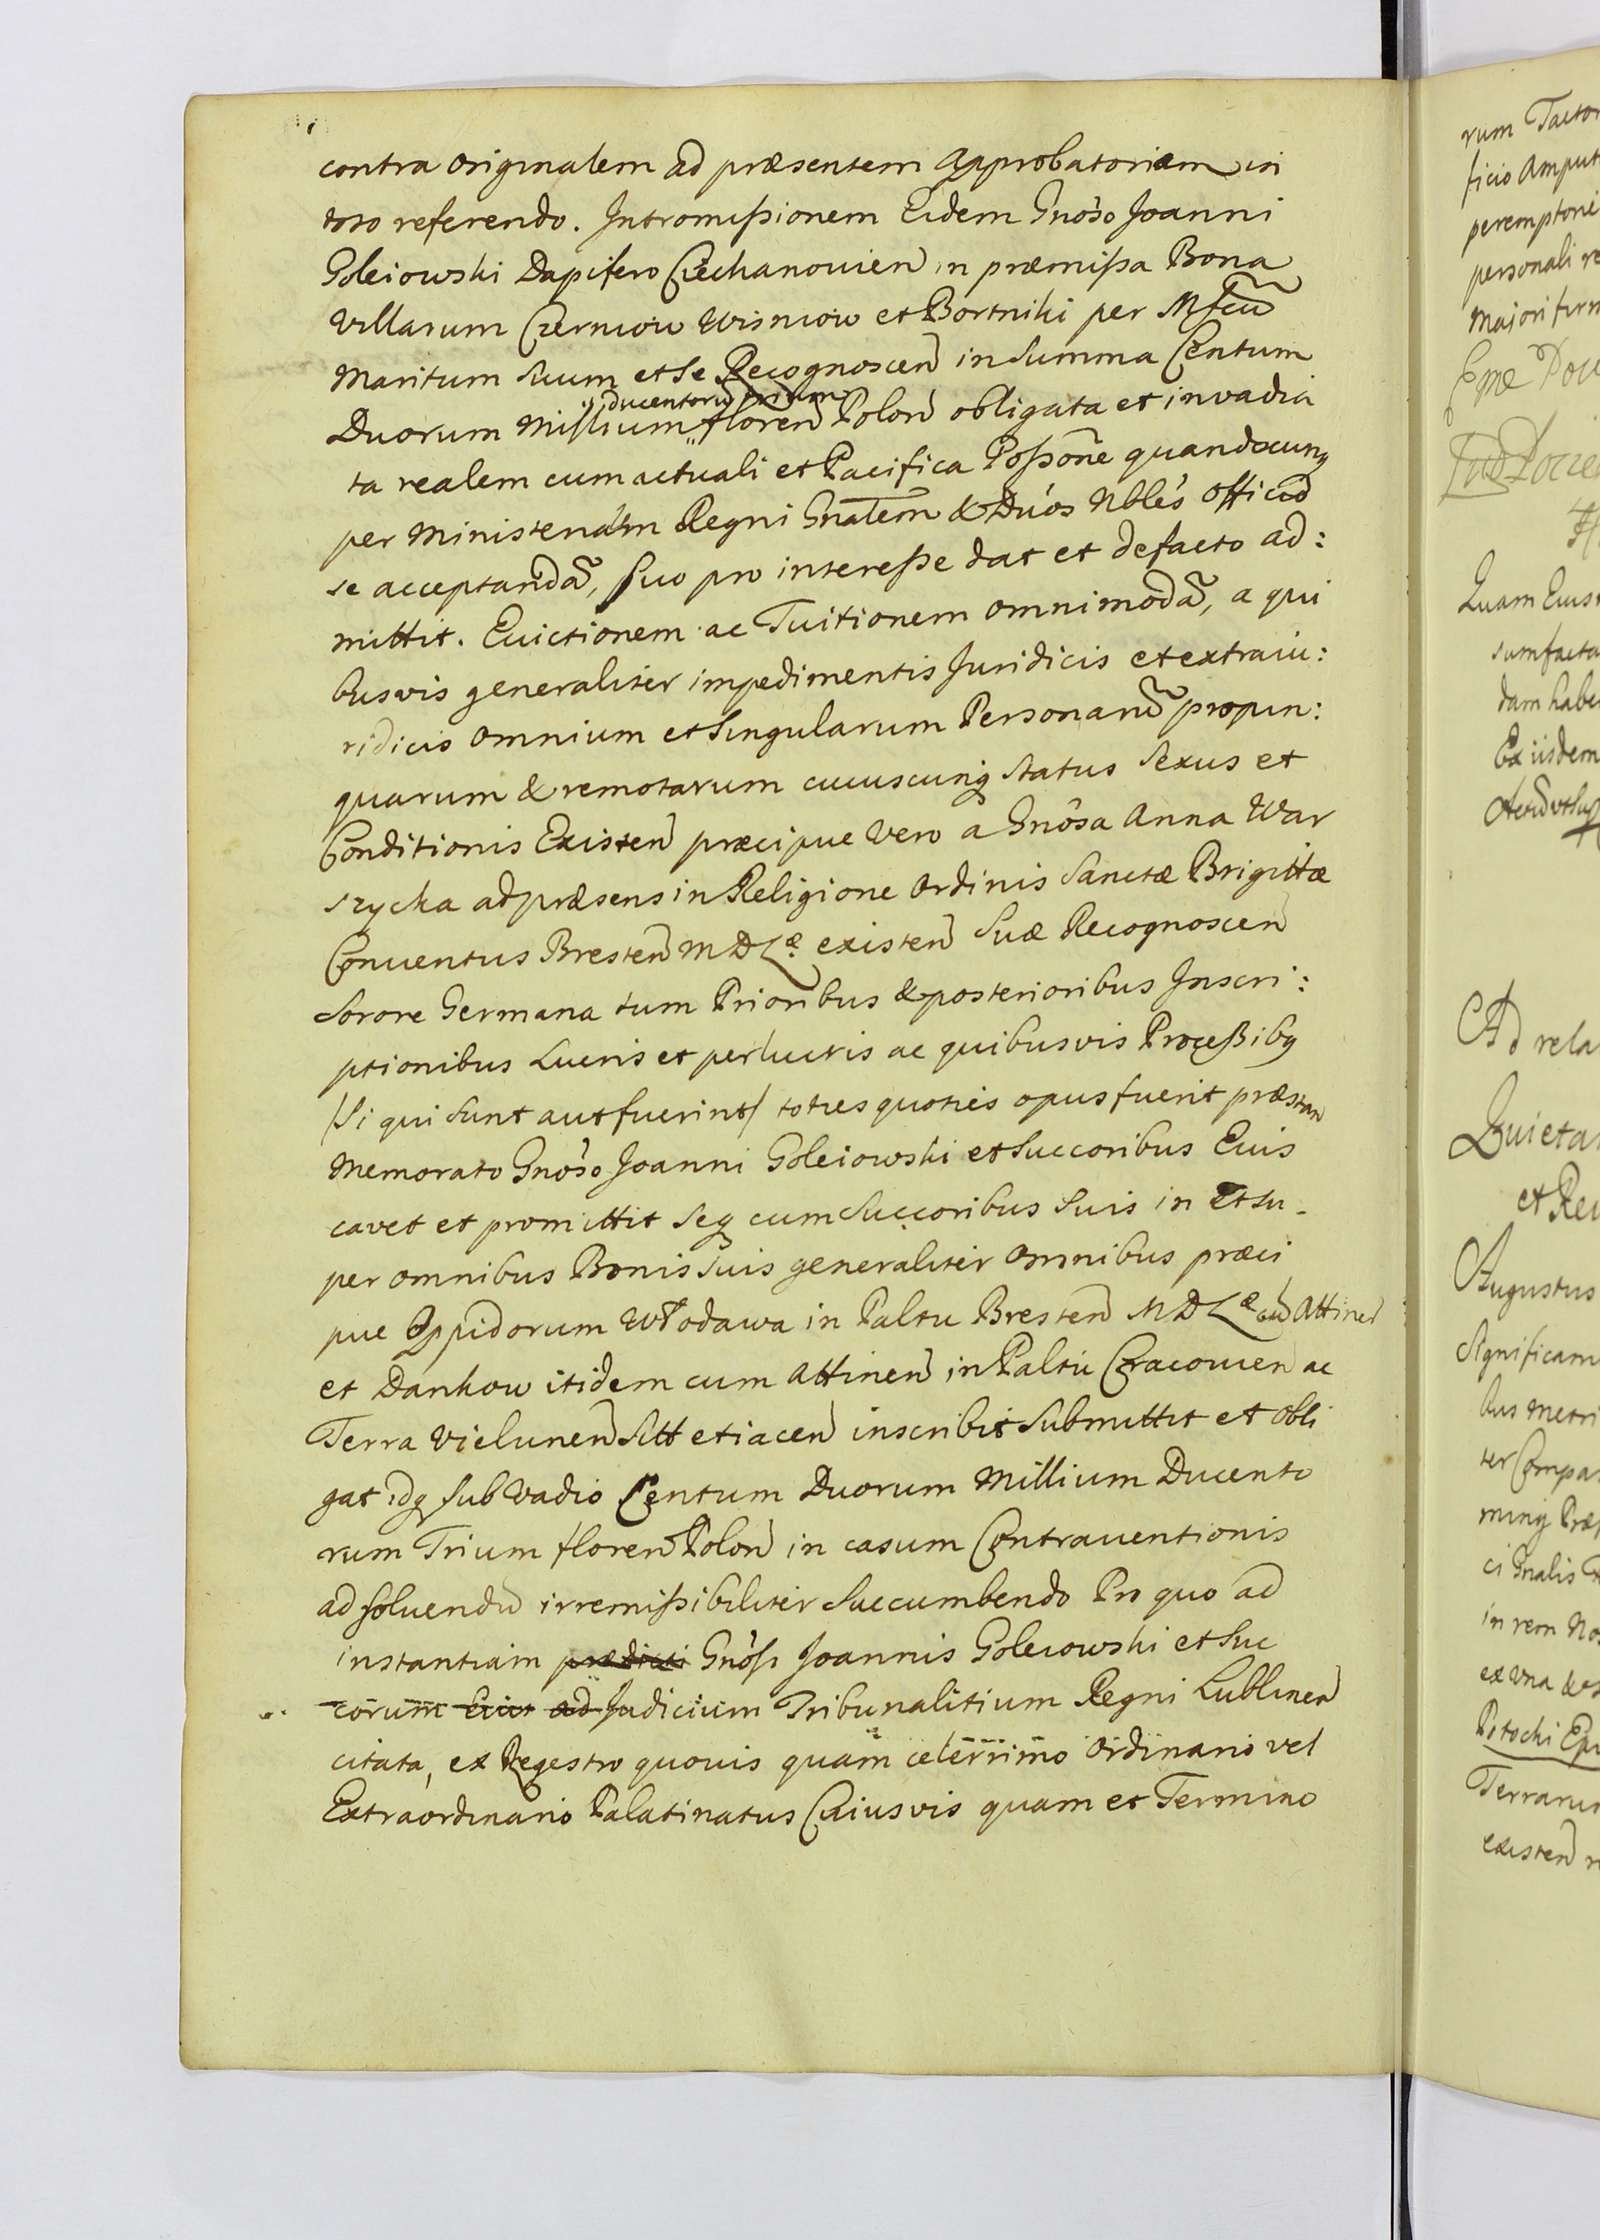 contra originalem ad præsentem Approbatoriam in
toto referendo. Intromißionem Eidem Gnoso Joanni
Goleiowski Dapifero Ciechanouien in præmißa Bona
Villarum Czerniow Wisniow et Bortniki per Mfcũ
Maritum suum et se Recognoscen in summa Centum
ducentorũ trium
Duorum Millium floren Polon obligata et invadia
ta realem cum actuali et Pacifica Poßoñe quandocunq
per Ministerialm Regni Gnałem & Duós Nblés officiõ
se acceptandã, suo pro intereße dat et defacto ad:
mittit. Euictionem ac Tuitionem omnimodã, a qui
busvis generaliter impedimentis Juridicis et extraiu:
ridicis omnium et singularum Personarũ propin:
quarum & remotarum cuiuscunq status sexus et
Conditionis Existen præcipue vero a Gnósa Anna War
szycka ad præsens in Religione ordinis Sanctæ Brigittæ
Conuentus Bresten M D Læ existen suæ Recognoscen
sorore Germana tum Prioribus & posterioribus Inscri:
ptionibus Lucris et perlucris ac quibusvis Proceßibq
/si qui sunt aut fuerint/ toties quoties opus fuerit præstan
memorato Gnóso Joanni Goleiowski et succoribus Eius
cavet et promittit seq cum succoribus suis in et su-
per omnibus Bonis suis generaliter omnibus præci
pue Oppidorum Włodawa in Paltu Bresten M D Læ cũ Attinen
et Dankow itidem cum Attinen in Paltu Cracouien ac
Terra Vielunen sitt et iacen inscribit submittit et obli
gat idq sub vadio Centum Duorum Millium Ducento
rum Trium floren Polon in casum Contrauentionis
ad soluendũ irremißibiliter succumbendo Pro quo ad
instantiam prædicti Gnósi Joannis Goleiowski et suc
corum Eius ad Judicium Tribunalitium Regni Lublinen
citata, ex Regestro quouis quam celerrimo ordinario vel
Extraordinario Palatinatus Cuiusvis quam et Termino
rum
ficio
peremptorie
personali re
Majori firm
Quam Eius
sum facta
dam habe
Ex iisdem
Ad rela
Quieta
et Re
Augustus
Significam
bus
ter Compa
ci Gnalis
in rem Nos
ex Vna
Potocki
Terrarum
existen